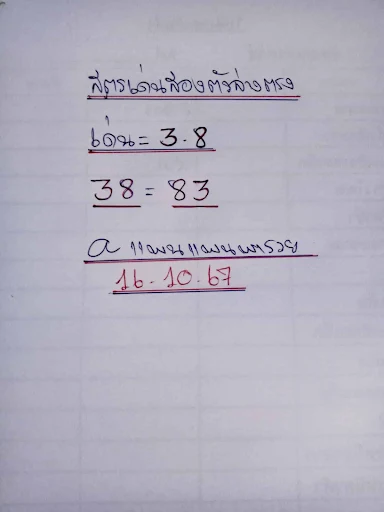 สูตรเด่นสองตัวล่างตรง
เด่น = 3.8
38 = 83
a แผนแผนพารวย
16.10.67